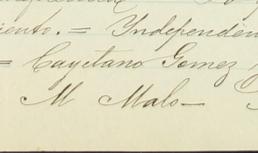 iento. = Independen
= Cayetano Gomez
M Malo—